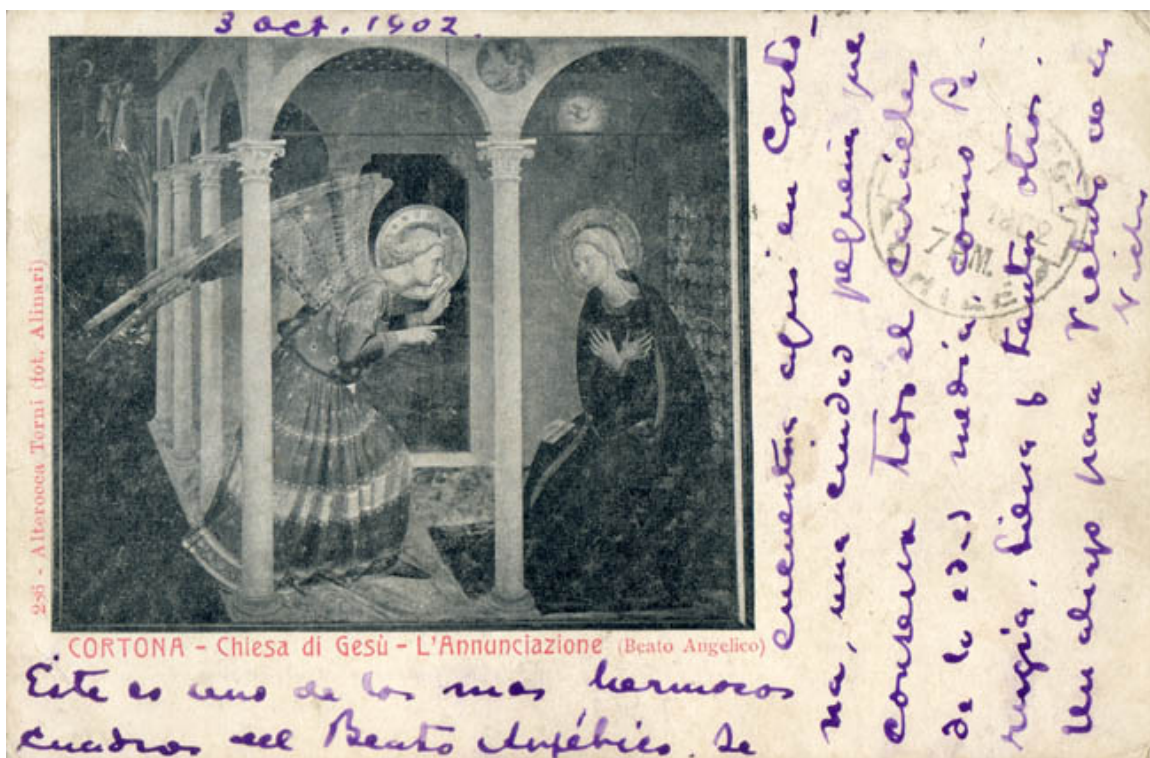 3 oct. 1902.
286 - Alterocca Terni (fot. Alinari)
CORTONA - Chiesa di Gesù - L'Annunciazione (Beato Angelico)
Este es uno de los mas hermosos
cuadros del Beato Angélico. Se
encuentra aqui en Corto-
na, una ciudad pequeña que
conserva todo el carácter
de la edad media, como Pe-
rugia, Siena y tantos otros.
Un abrazo para
7 M.